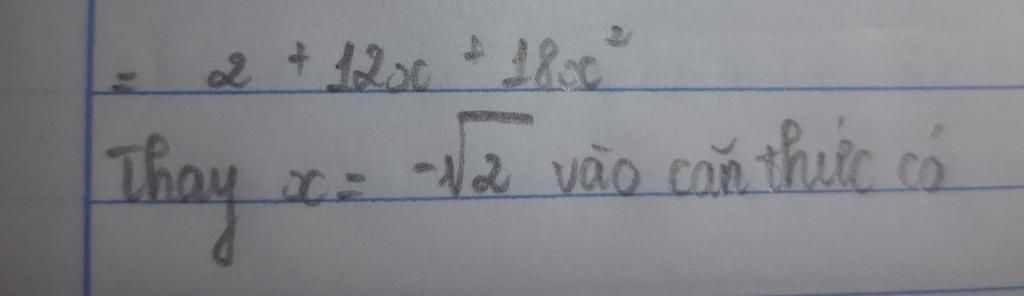 = 2 + 12x + 18x²
Thay x = -√2 vào căn thức có